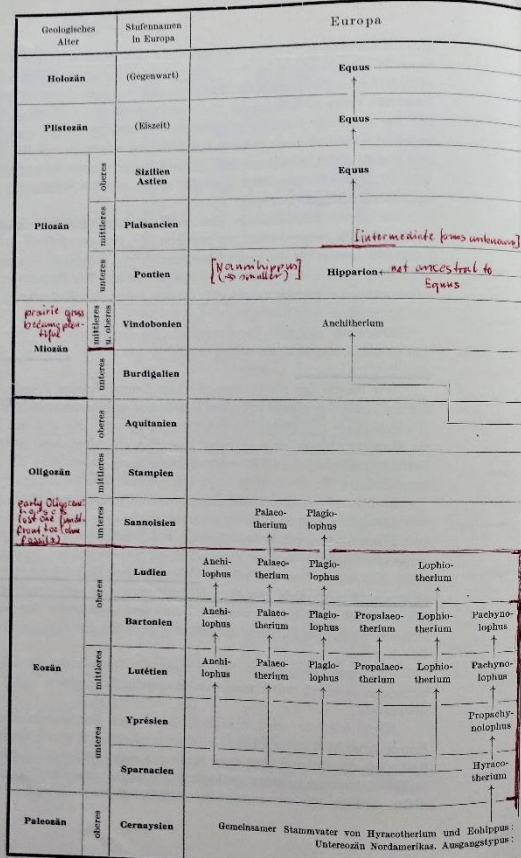 Geologisches
Alter
Stufennamen
in Europa
Europa
Holozän
(Gegenwart)
Equus
Plistozän
(Eiszeit)
Equus
Pliozän
oberes
Sizilien
Astien
Equus
mittleres
Plaisancien
[intermediate forms unknown]
unteres
Pontien
[Nannihippus]
(→ smaller)
Hipparion
not ancestral to
Equus
prairie grass
became plen-
tiful
Miozän
mittleres
u. oberes
Vindobonien
Anchitherium
unteres
Burdigalien
Oligozän
oberes
Aquitanien
mittleres
Stampien
early Oligocene
lost one
front toe
fossils)
unteres
Sannoisien
Palaeo-
therium
Plagio-
lophus
Eozän
oberes
Ludien
Anchi-
lophus
Palaeo-
therium
Plagio-
lophus
Lophio-
therium
Bartonien
Anchi-
lophus
Palaeo-
therium
Plagio-
lophus
Propalaeo-
therium
Lophio-
therium
Pachyno-
lophus
mittleres
Lutétien
Anchi-
lophus
Palaeo-
therium
Plagio-
lophus
Propalaeo-
therium
Lophio-
therium
Pachyno-
lophus
unteres
Yprésien
Propachy-
nolophus
Sparnacien
Hyraco-
therium
Paleozän
oberes
Cernaysien
Gemeinsamer Stammvater von Hyracotherium und Eohippus:
Untereozän Nordamerikas. Ausgangstypus: